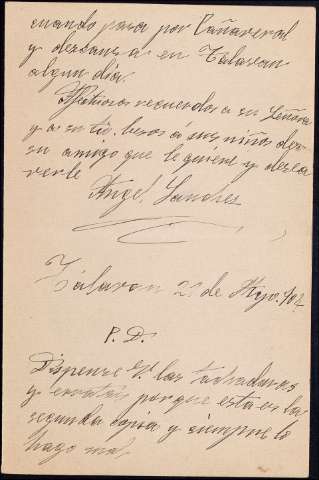 cuando pasa por Cañaveral
y descansa en Talavan
algun dia.
Afectuosos recuerdos a su Señora
y a su tio, besos á sus niños de
su amigo que le quiere y desea
verle
Angel Sanchez
Talavan 2 de Myo. 902
P. D.
Dispense V. las tachaduras
y erratas porque esta es la
segunda copia y siempre lo
hago mal,